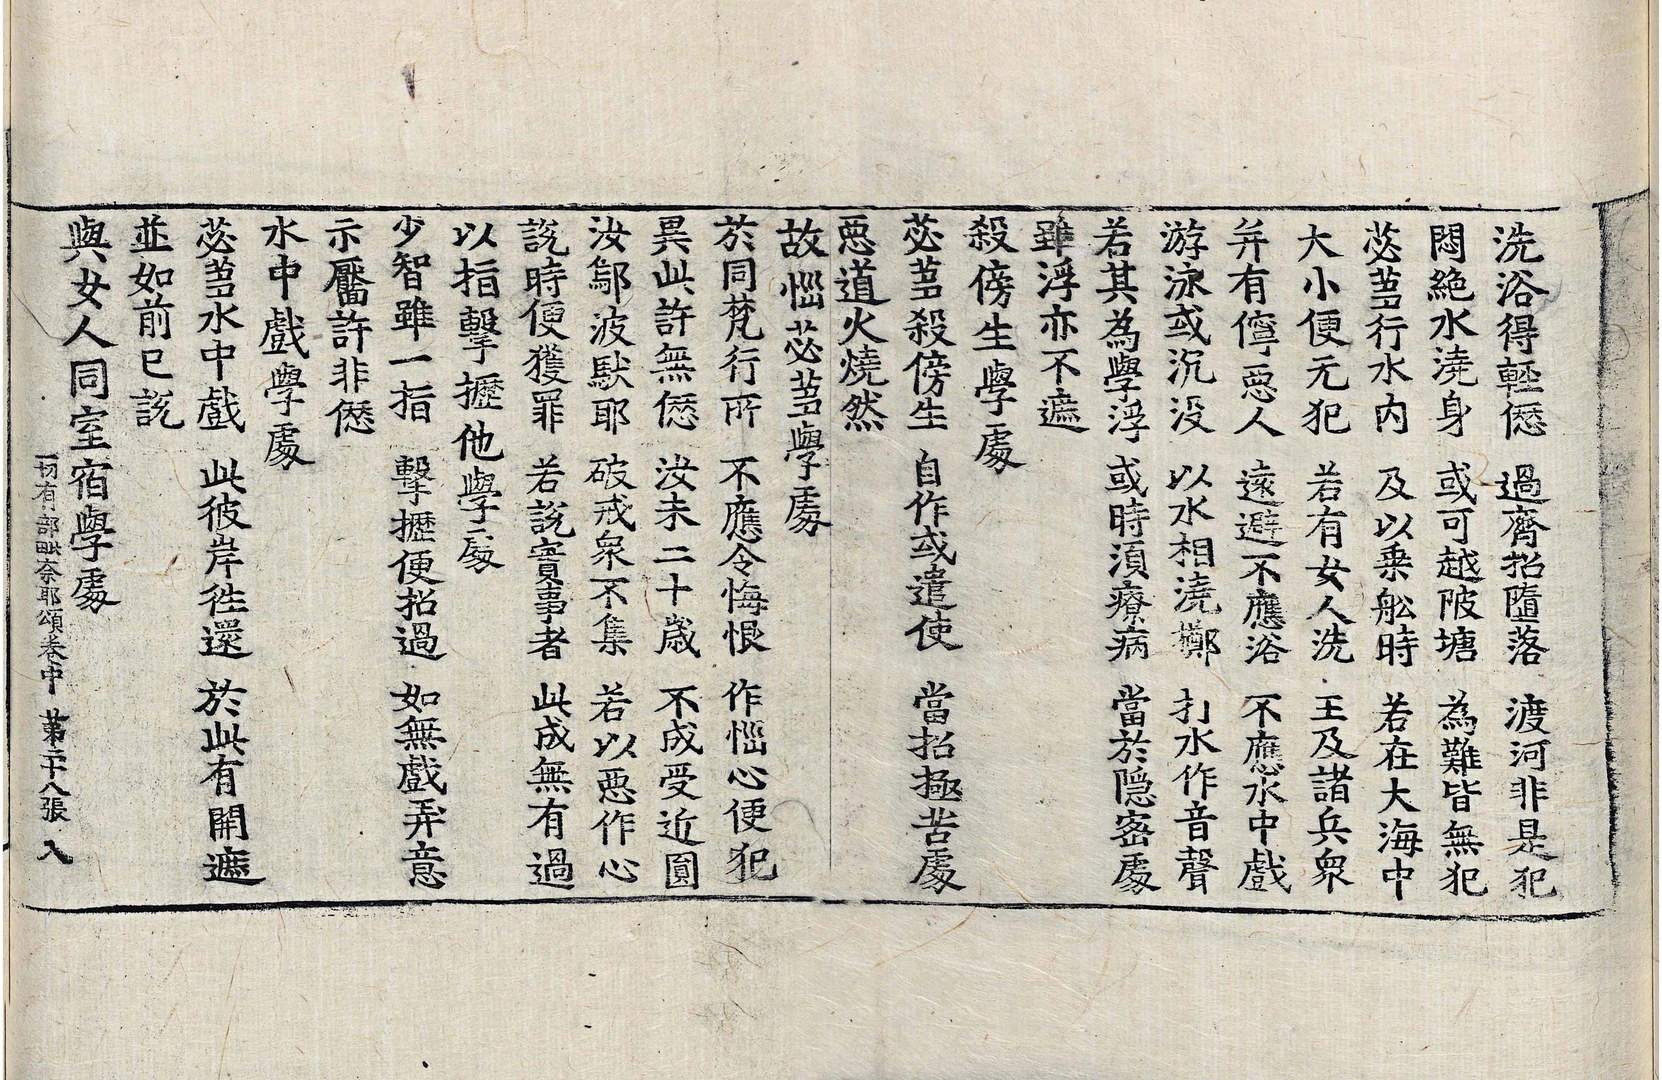 洗浴得輕愆 過齊招墮落 渡河非是犯
悶絕水澆身 或可越陂塘 為難皆無犯
苾芻行水內 及以乗舩時 若在大海中
大小便无犯 若有女人洗 王及諸兵衆
并有儜惡人 遠避不應浴 不應水中戲
游泳或沉没 以水相澆擲 打水作音聲
若其為學浮 或時須療病 當於隱密處
雖浮亦不遮
殺傍生學處
苾芻殺傍生 自作或遣使 當招極苦處
惡道火燒然
故惱苾芻學處
於同梵行所 不應令悔恨 作惱心便犯
異此許無愆 汝未二十歲 不成受近圓
汝鄔波馱耶 破戒衆不集 若以惡作心
說時便獲罪 若說實事者 此成無有過
以指擊攊他學處
少智雖一指 擊攊便招過 如無戲弄意
示靨許非愆
水中戲學處
苾芻水中戲 此彼岸往還 於此有開遮
並如前已說
與女人同室宿學處
一切有部毗奈耶頌卷中 第二十八張 入